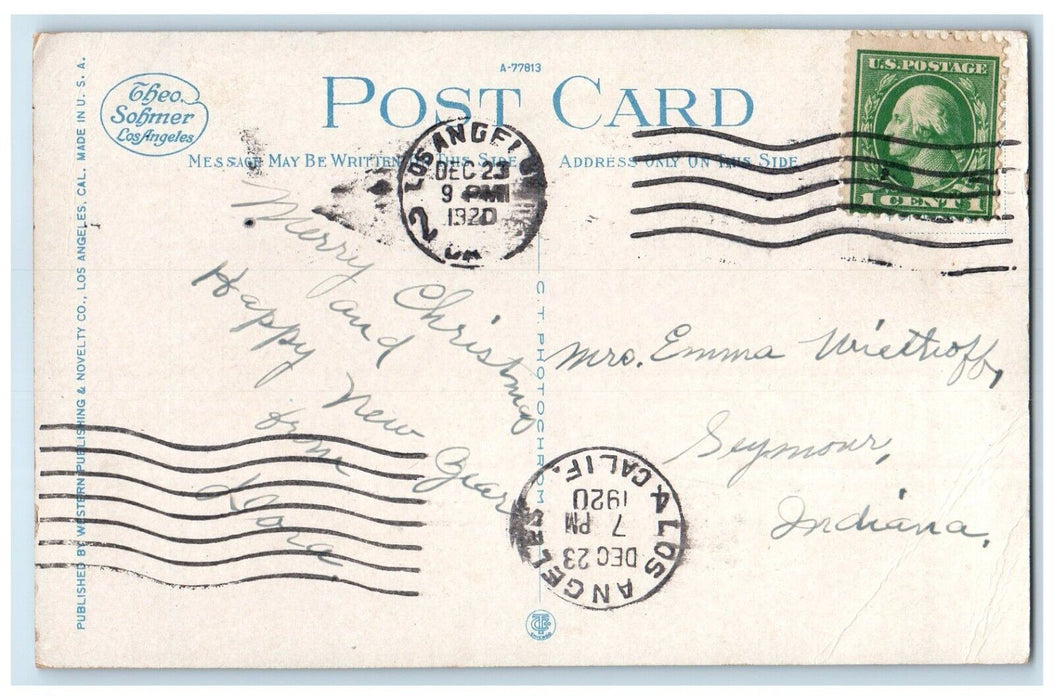 A-77813
Theo.
Sohmer
Los Angeles
POST CARD
MESSAGE MAY BE WRITTEN ON THIS SIDE
ADDRESS ONLY ON THIS SIDE
U.S. POSTAGE
1 CENT 1
LOS ANGELES
DEC 23
9 PM
1920
2
CA
Merry Christmas
and
Happy New Year
from
Mrs. Emma Wiethoff,
Seymour,
Indiana.
LOS ANGELES
DEC 23
7 PM
1920
4 CALIF.
C T PHOTOCHROM
PUBLISHED BY WESTERN PUBLISHING & NOVELTY CO., LOS ANGELES, CAL. MADE IN U. S. A.